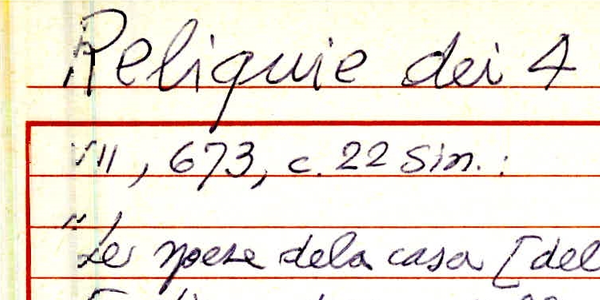 Reliquie dei 4
VII, 673, c. 22 sin.:
"Le spese dela casa [del